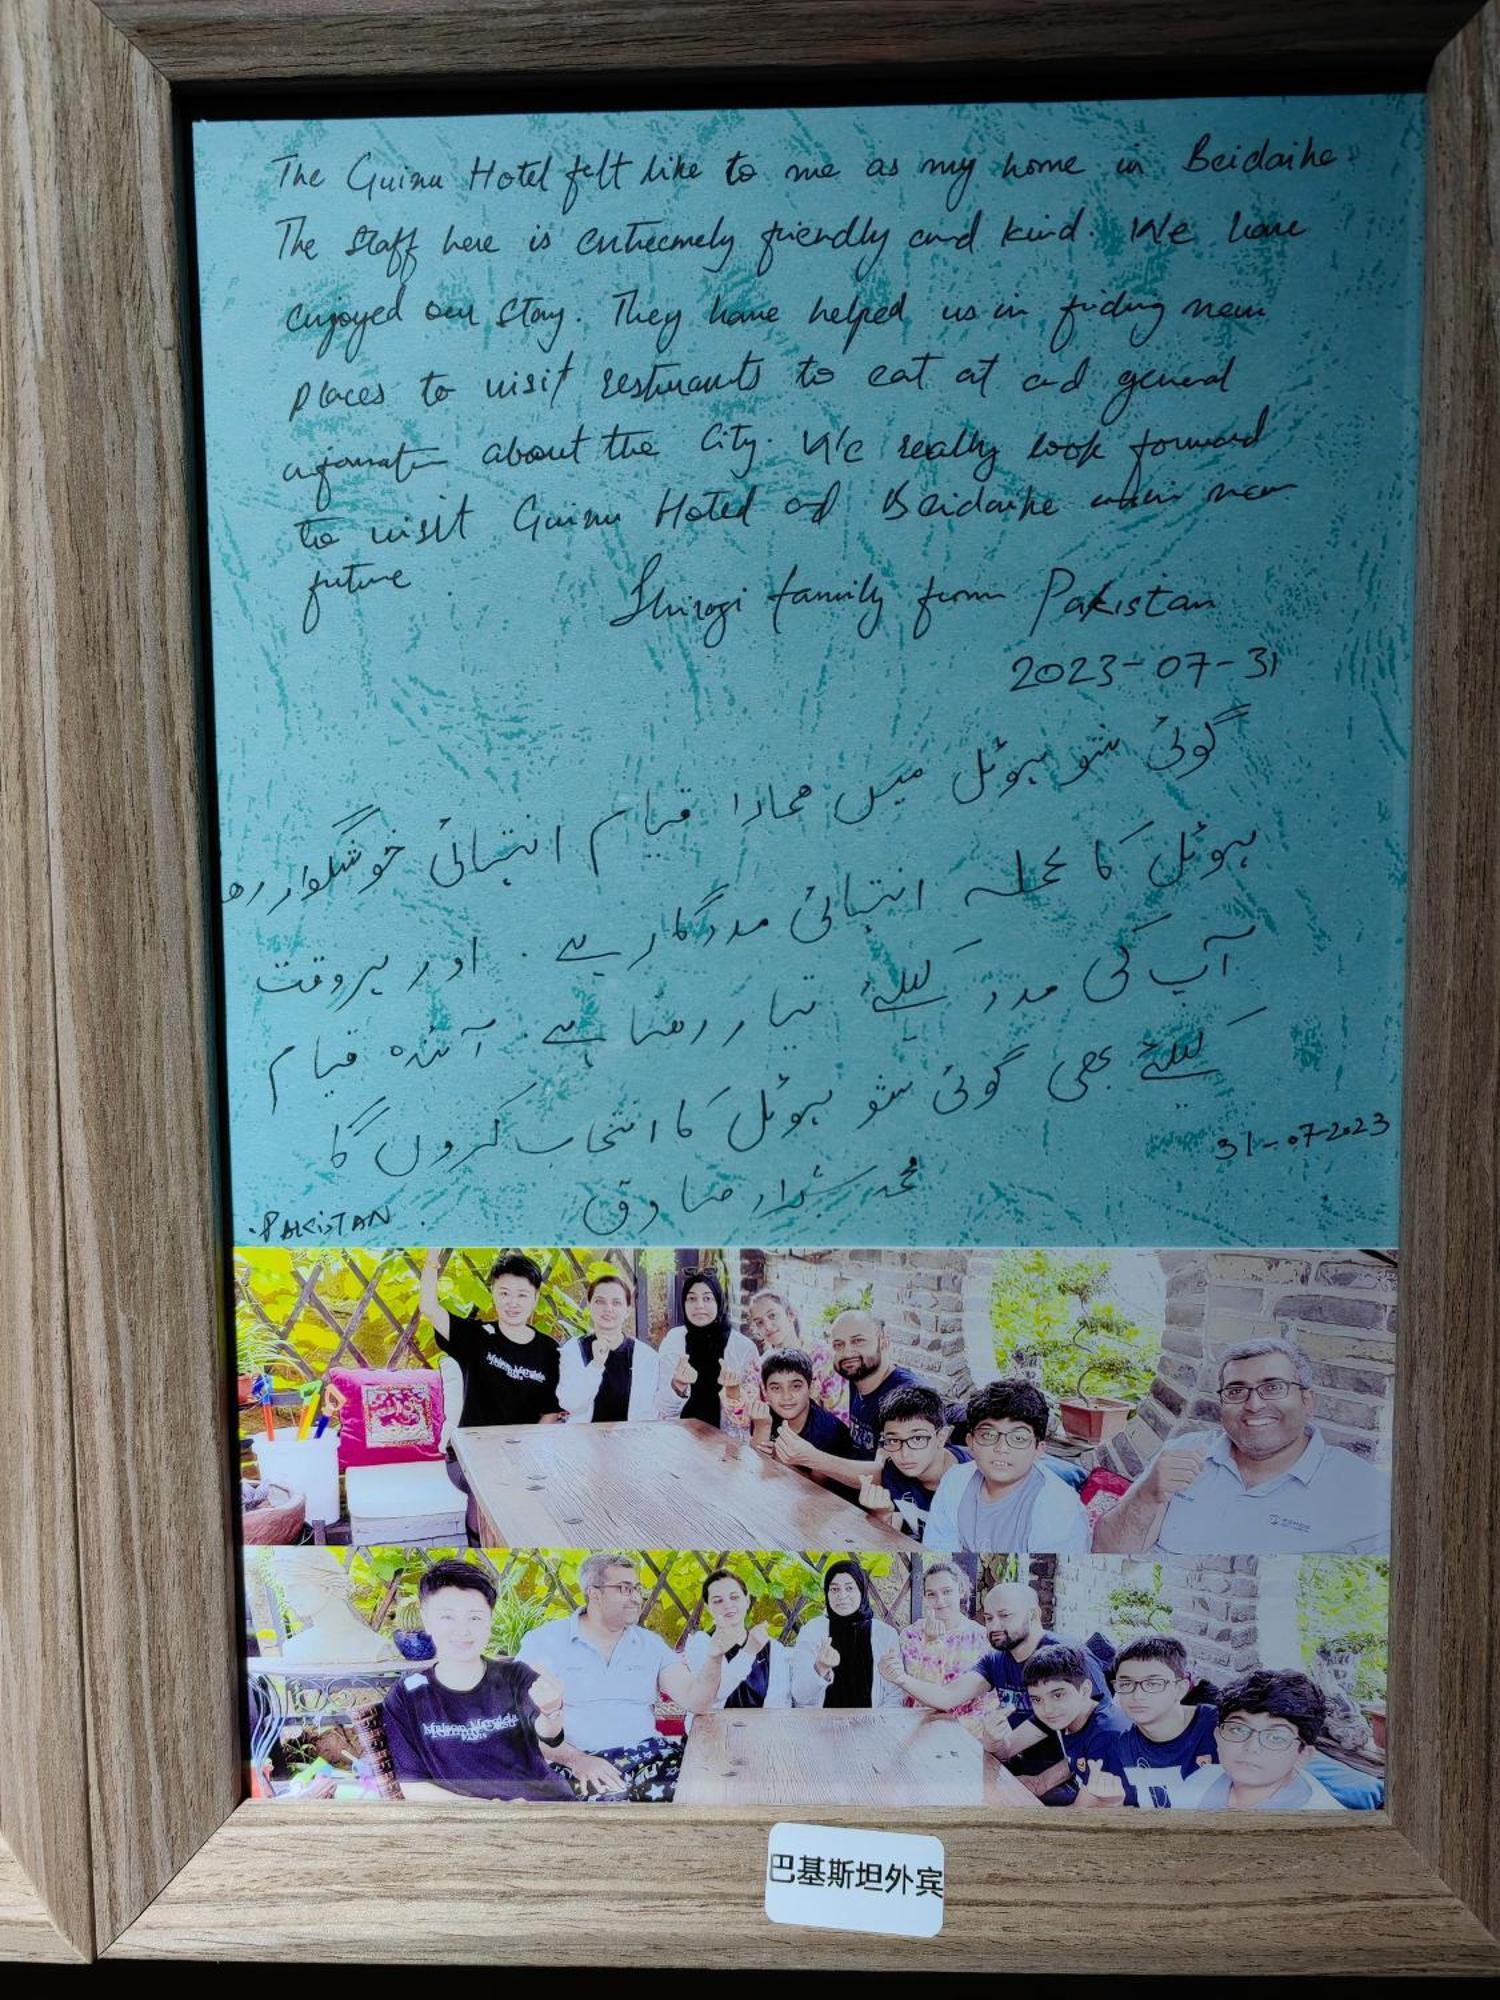 The Guinu Hotel felt like to me as my home in Beidaihe.
The staff here is extremely friendly and kind. We have
enjoyed our stay. They have helped us in finding new
places to visit resturants to eat at and general
information about the City. We really look forward
to visit Guinu Hoted ad Beidaihe in near
future.
family from Pakistan
2023-07-31
گوئی شو ہوٹل میں ھمارا قیام انتہائی خوشگوار رھا
ہوٹل کا عملہ انتہائی مددگار ہے۔ اور ہر وقت
آپ کی مدد کیلئے تیار رھتا ہے۔ آئندہ قیام
کیلئے بھی گوئی شو ہوٹل کا انتخاب کروں گا
31-07-2023
محمد صادق
PAKISTAN
巴基斯坦外宾